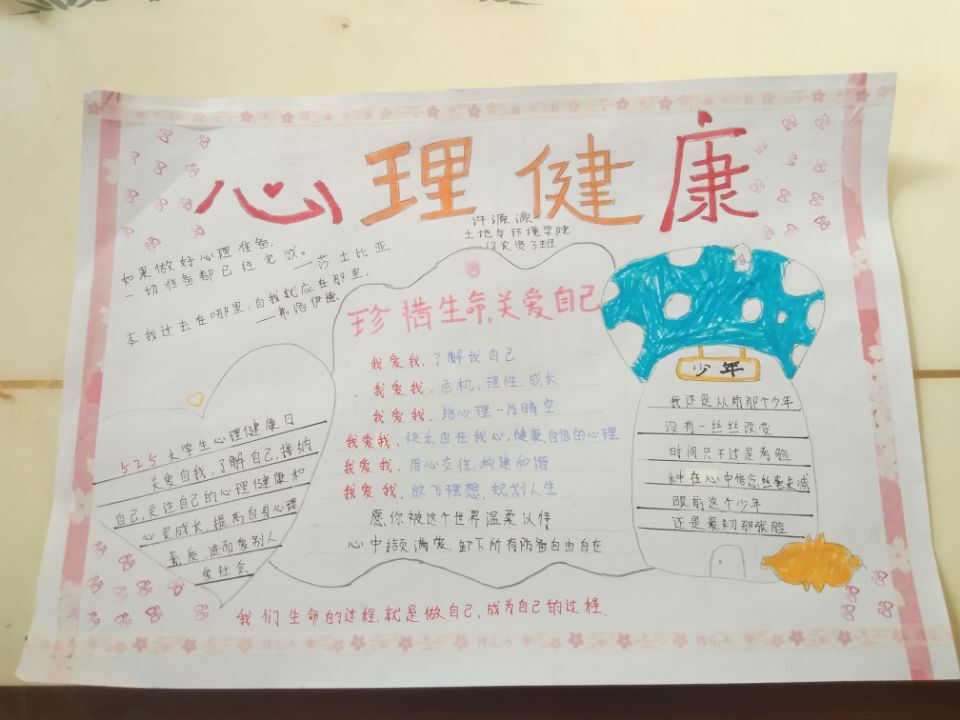 心理健康
许源源
土地与环境学院
18农资3班
如果做好心理准备,
一切准备都已经完成。
——莎士比亚
本我过去在哪里,自我就应在那里.
——弗洛伊德
珍惜生命,关爱自己
我爱我,了解我自己
我爱我,危机、理性、成长
我爱我,给心理一片晴空
我爱我,快乐自在我心,健康自信的心理
我爱我,用心交往,构建和谐
我爱我,放飞理想,规划人生
愿你被这个世界温柔以待
心中填满爱,卸下所有防备自由自在
525大学生心理健康日
关爱自我,了解自己,接纳
自己,关注自己的心理健康和
心灵成长,提高自身心理
素质,进而爱别人
爱社会
少年
我还是从前那个少年
没有一丝丝改变
时间只不过是考验
种在心中信念丝毫未减
眼前这个少年
还是最初那张脸
我们生命的过程,就是做自己,成为自己的过程.